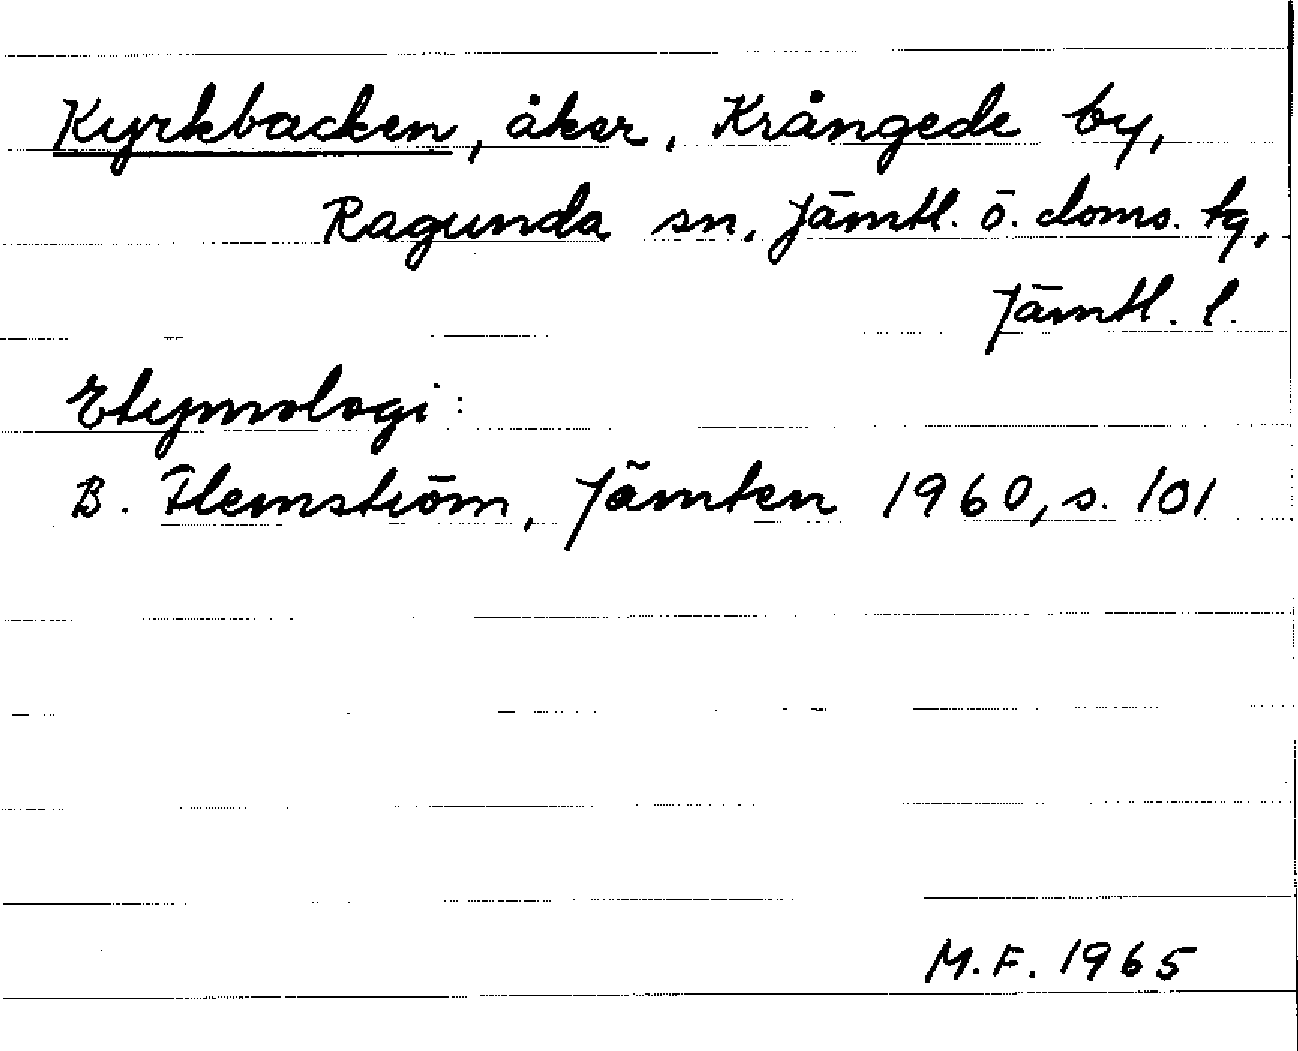 Kyrkbacken, åker, Krångede by,
Ragunda sn, Jämtl. ö. doms. tg,
Jämtl. l.
Etymologi:
B. Flemström, Jämten 1960, s. 101
M.F. 1965